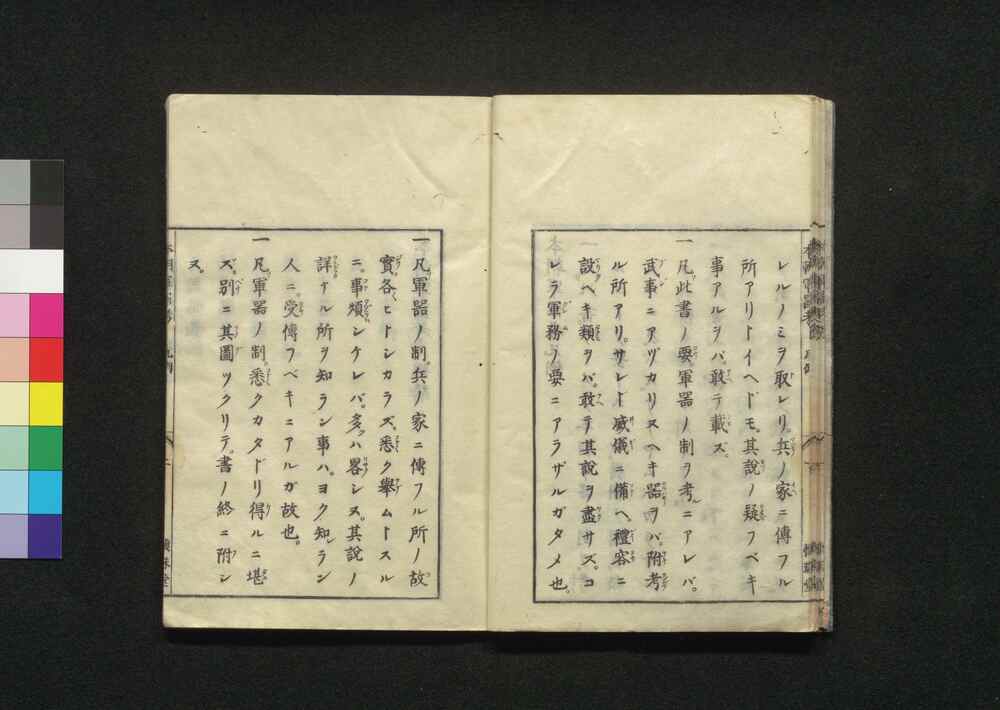 レルノミヲ取レリ。兵ノ家ニ傳フル
所アリトイヘドモ。其說ノ疑フベキ
事アルヲバ。敢テ載ズ。
一凡此書ノ要軍器ノ制ヲ考ニアレバ。
武事ニアヅカリヌヘキ器ヲバ。附考
ル所アリ。サレド威儀ニ備ヘ。禮容ニ
設ヘキ類ヲバ。敢テ其說ヲ盡サズ。コ
レラ軍務ノ要ニアラザルガタメ也。
一凡軍器ノ制。兵ノ家ニ傳フル所ノ故
實。各ヒトシカラズ。悉ク舉ムトスル
ニ。事煩シケレバ。多ハ畧シヌ。其說ノ
詳ナル所ヲ知ラン事ハ。ヨク知ラン
人ニ。受傳フベキニアルガ故也。
一凡軍器ノ制。悉クカタドリ得ルニ堪
ズ。別ニ其圖ツクリテ。書ノ終ニ附シ
ヌ。